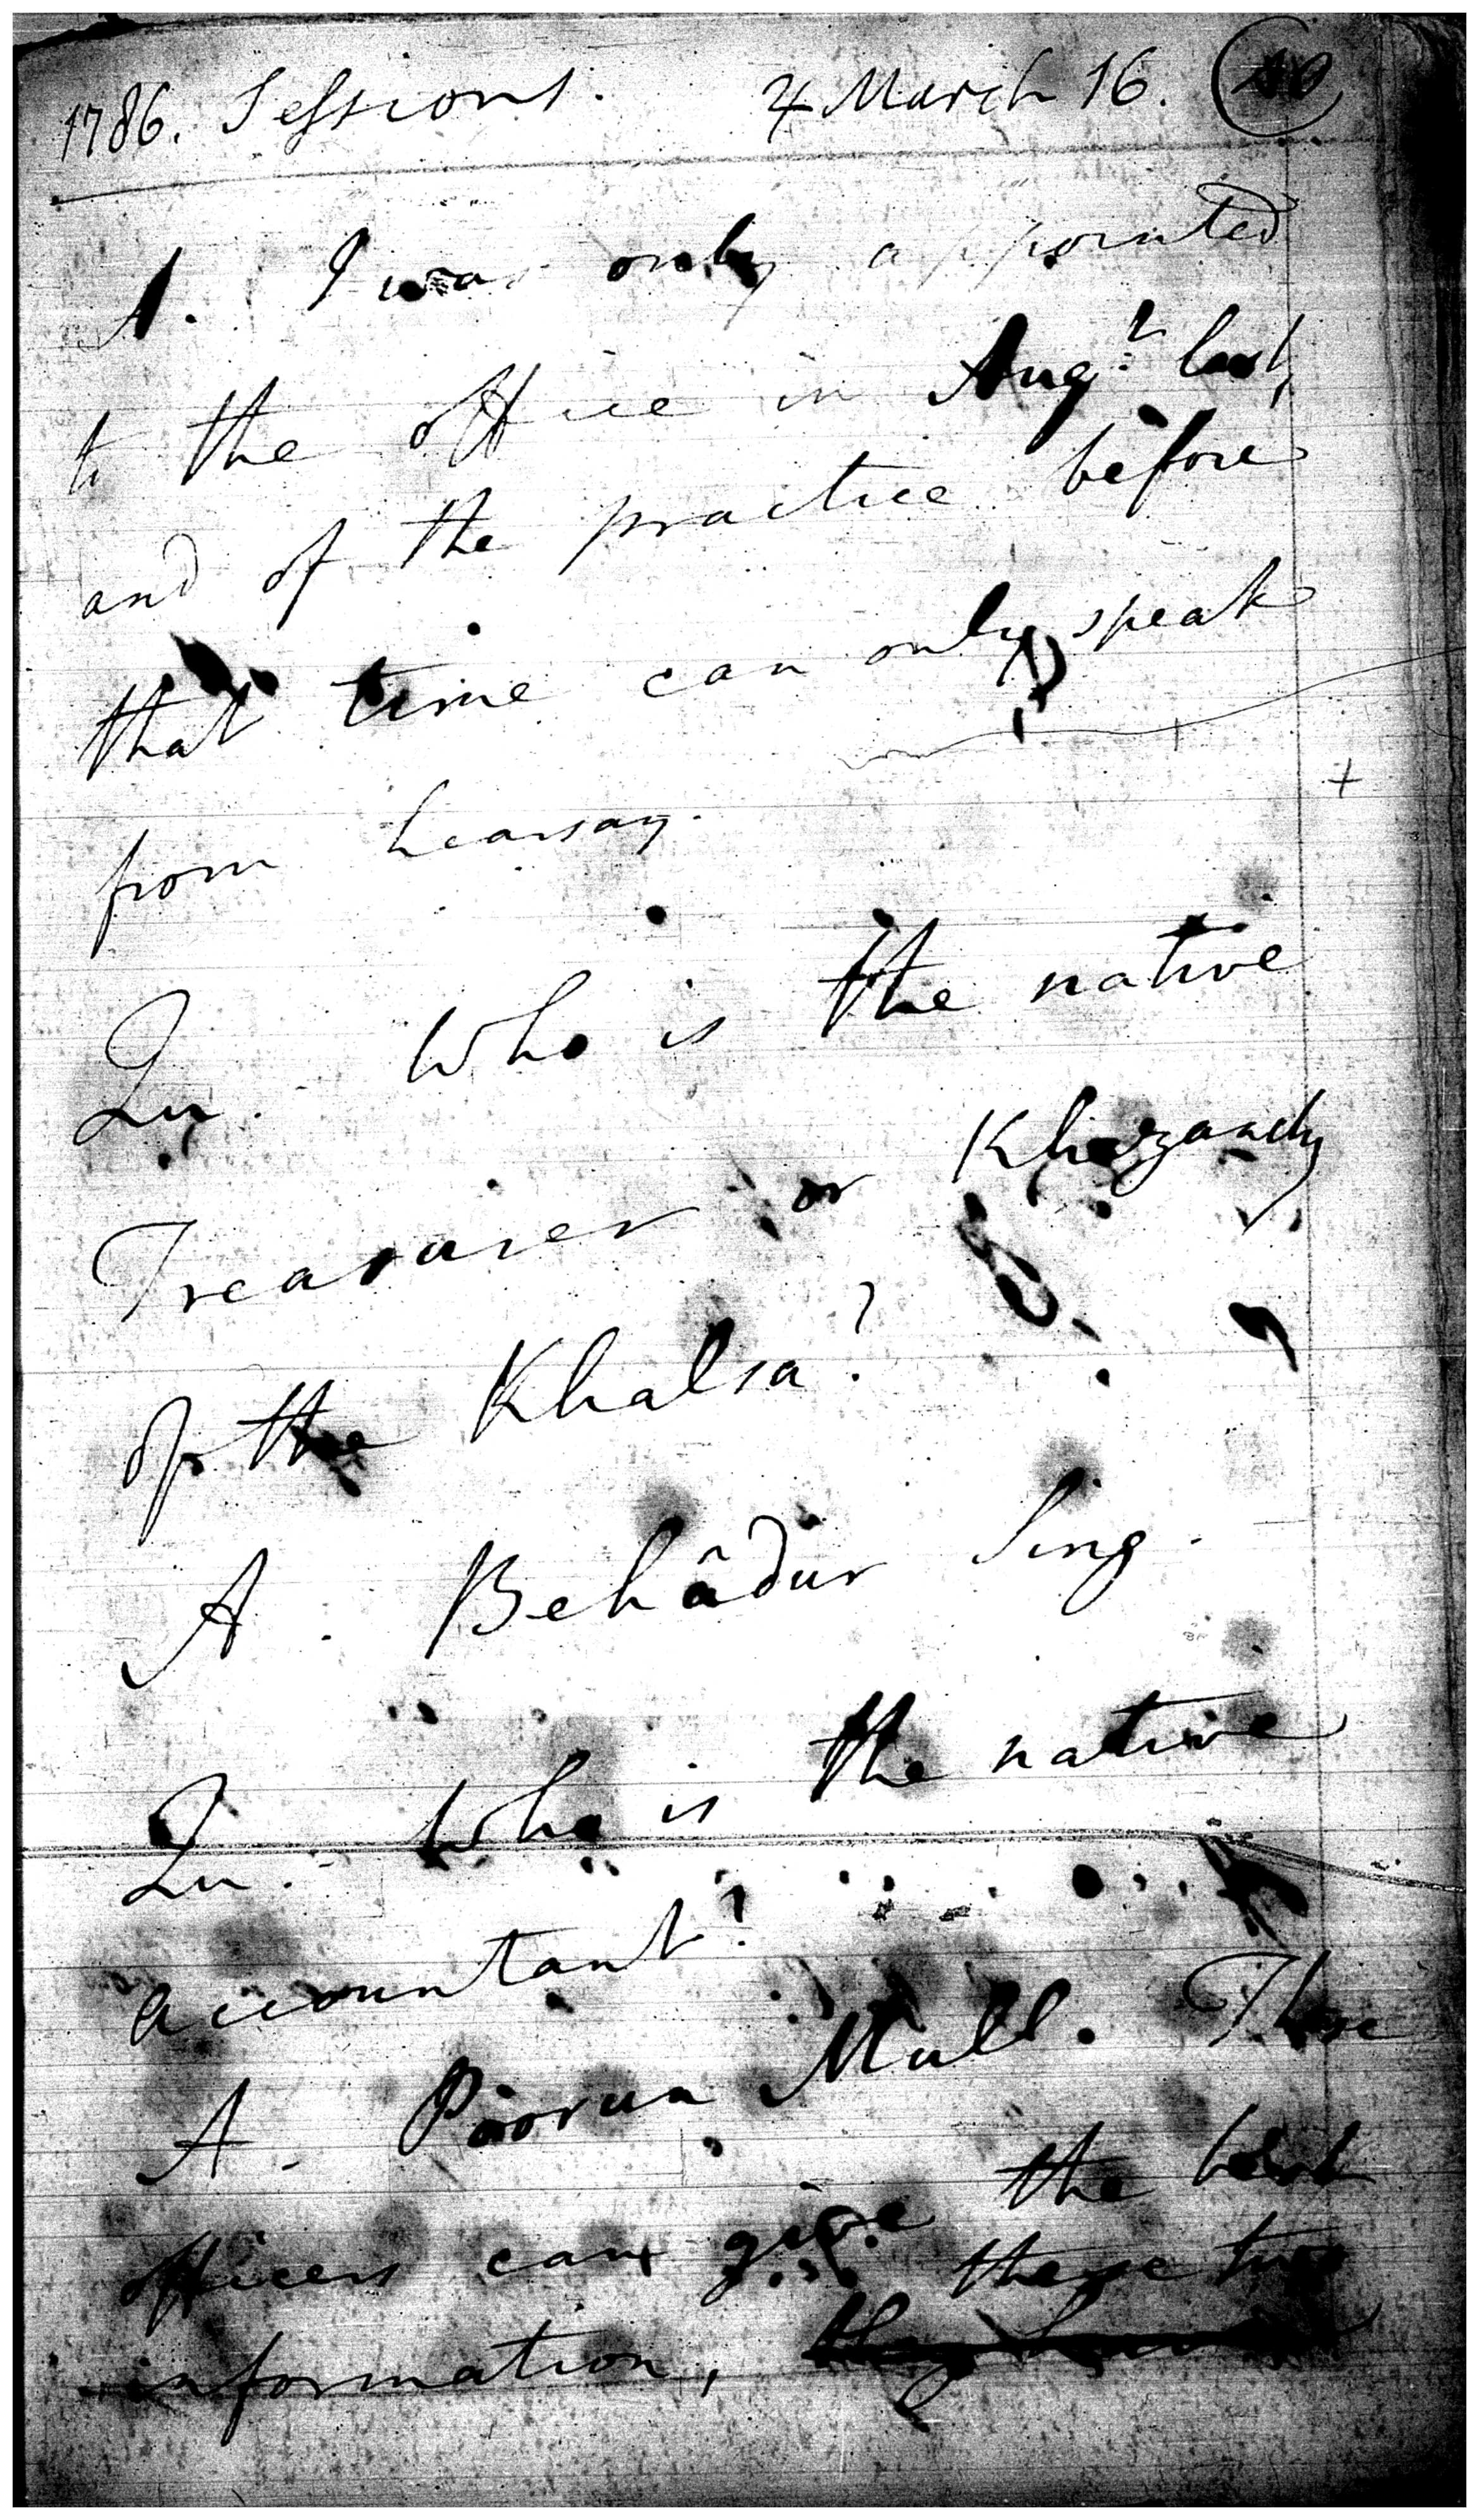 1786. Sessions. 4 March 16. 40
A. I was only appointed
to the office in Aug.t last,
and of the practice before
that time can only speak
from hearsay.
+
Qu. Who is the native
Treasurer or Khazandy
of the Khalsa?
A. Behâdur Sing.
Qu. Who is the native
accountant?
A. Poorun Mull. These
officers can give the best
these two
information, they have